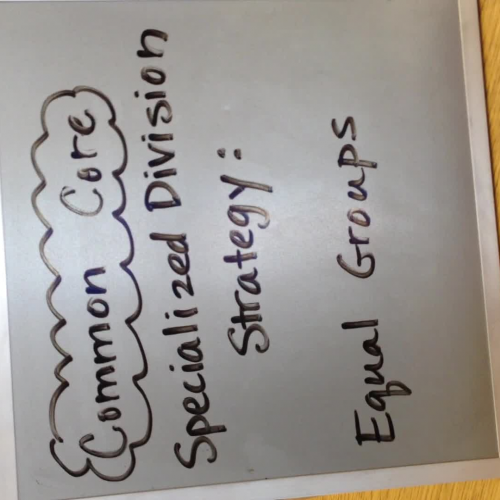 Common Core
Specialized Division
Strategy:
Equal Groups